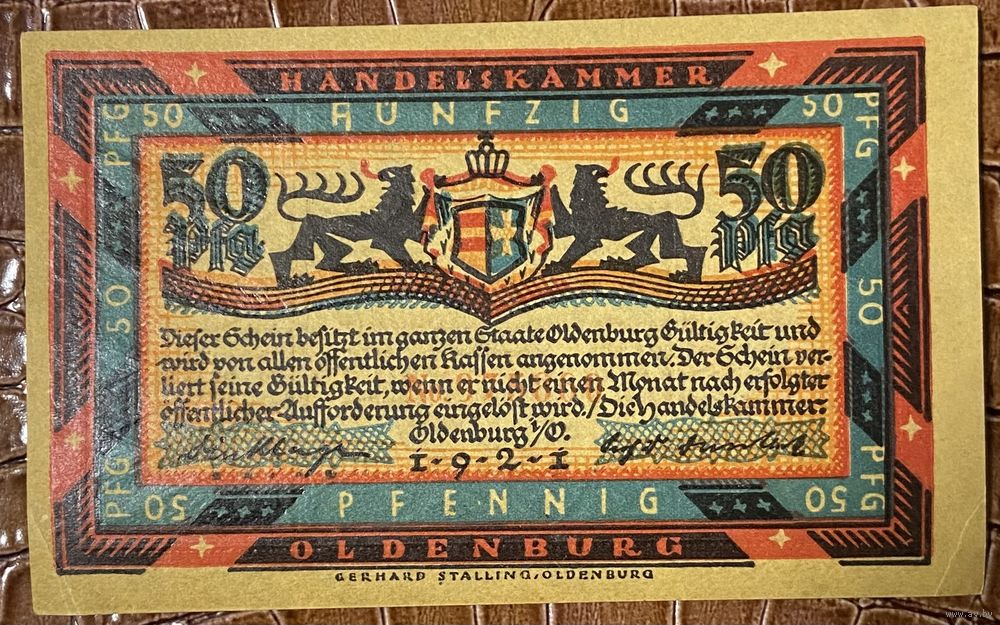 HANDELSKAMMER
50 FÜNFZIG 50
PFG PFG
50 50
Pfg Pfg
50 50
Dieser Schein besitzt im ganzen Staate Oldenburg Gültigkeit und
wird von allen öffentlichen Kassen angenommen. Der Schein ver-
liert seine Gültigkeit, wenn er nicht einen Monat nach erfolgter
öffentlicher Aufforderung eingelöst wird./Die Handelskammer:
Oldenburg i/O.
1·9·2·1
PFG PFG
50 PFENNIG 50
OLDENBURG
GERHARD STALLING/OLDENBURG
www.ay.by